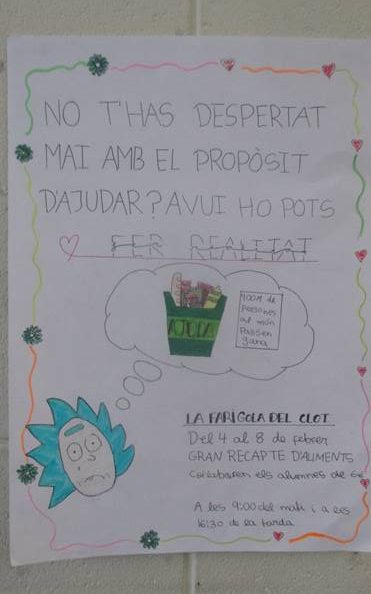 NO T'HAS DESPERTAT
MAI AMB EL PROPÒSIT
D'AJUDAR? AVUI HO POTS
FER REALITAT
AJUDA
400M de
persones
al món
passen
gana
LA FARIGOLA DEL CLOT
Del 4 al 8 de febrer
GRAN RECAPTE D'ALIMENTS
Col·laboren els alumnes de 6è
A les 9:00 del matí i a les
16:30 de la tarda